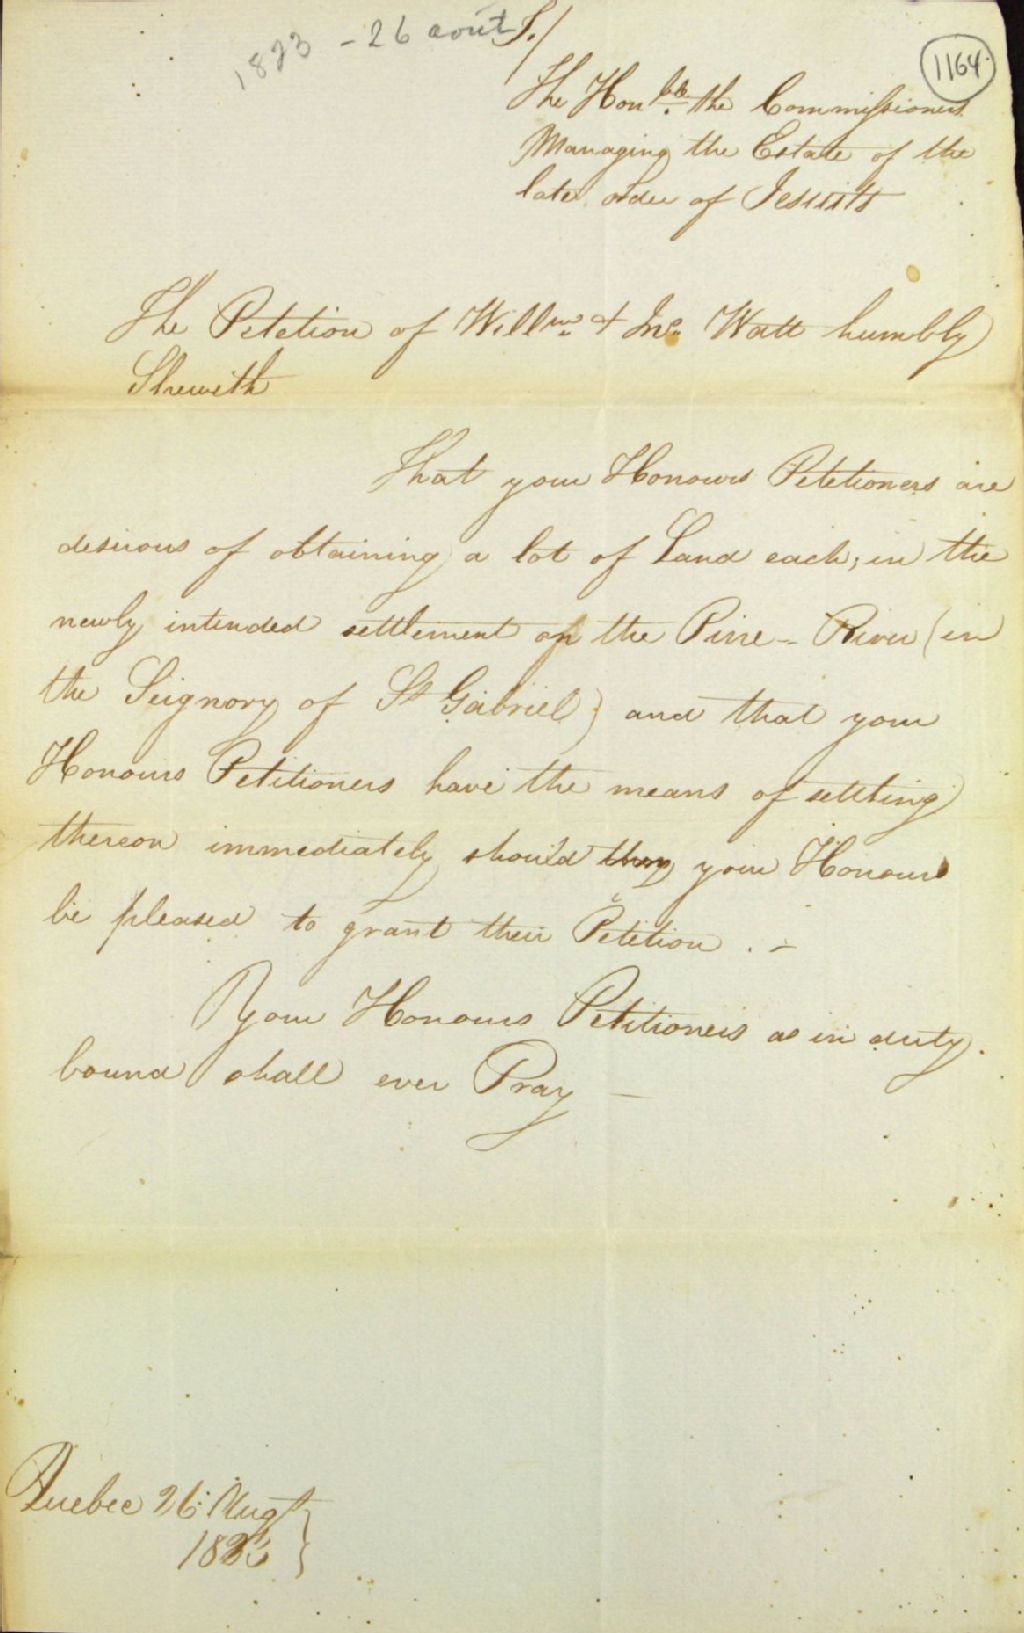 1823 - 26 août
1164
T./
The Hon.ble the Commissioners
Managing the Estate of the
late order of Jesuits
The Petetion of Willm. & Jno. Watt humbly
Sheweth
That your Honours Petetioners are
desirous of obtaining a lot of Land each, in the
newly intended settlement on the Pine - River (in
the Seignory of St Gabriel) and that your
Honours Petitioners have the means of settling
thereon immediately should they your Honours
be pleased to grant their Petetion . -
Your Honours Petitioners as in duty
bound shall ever Pray -
Quebec 26 Augt